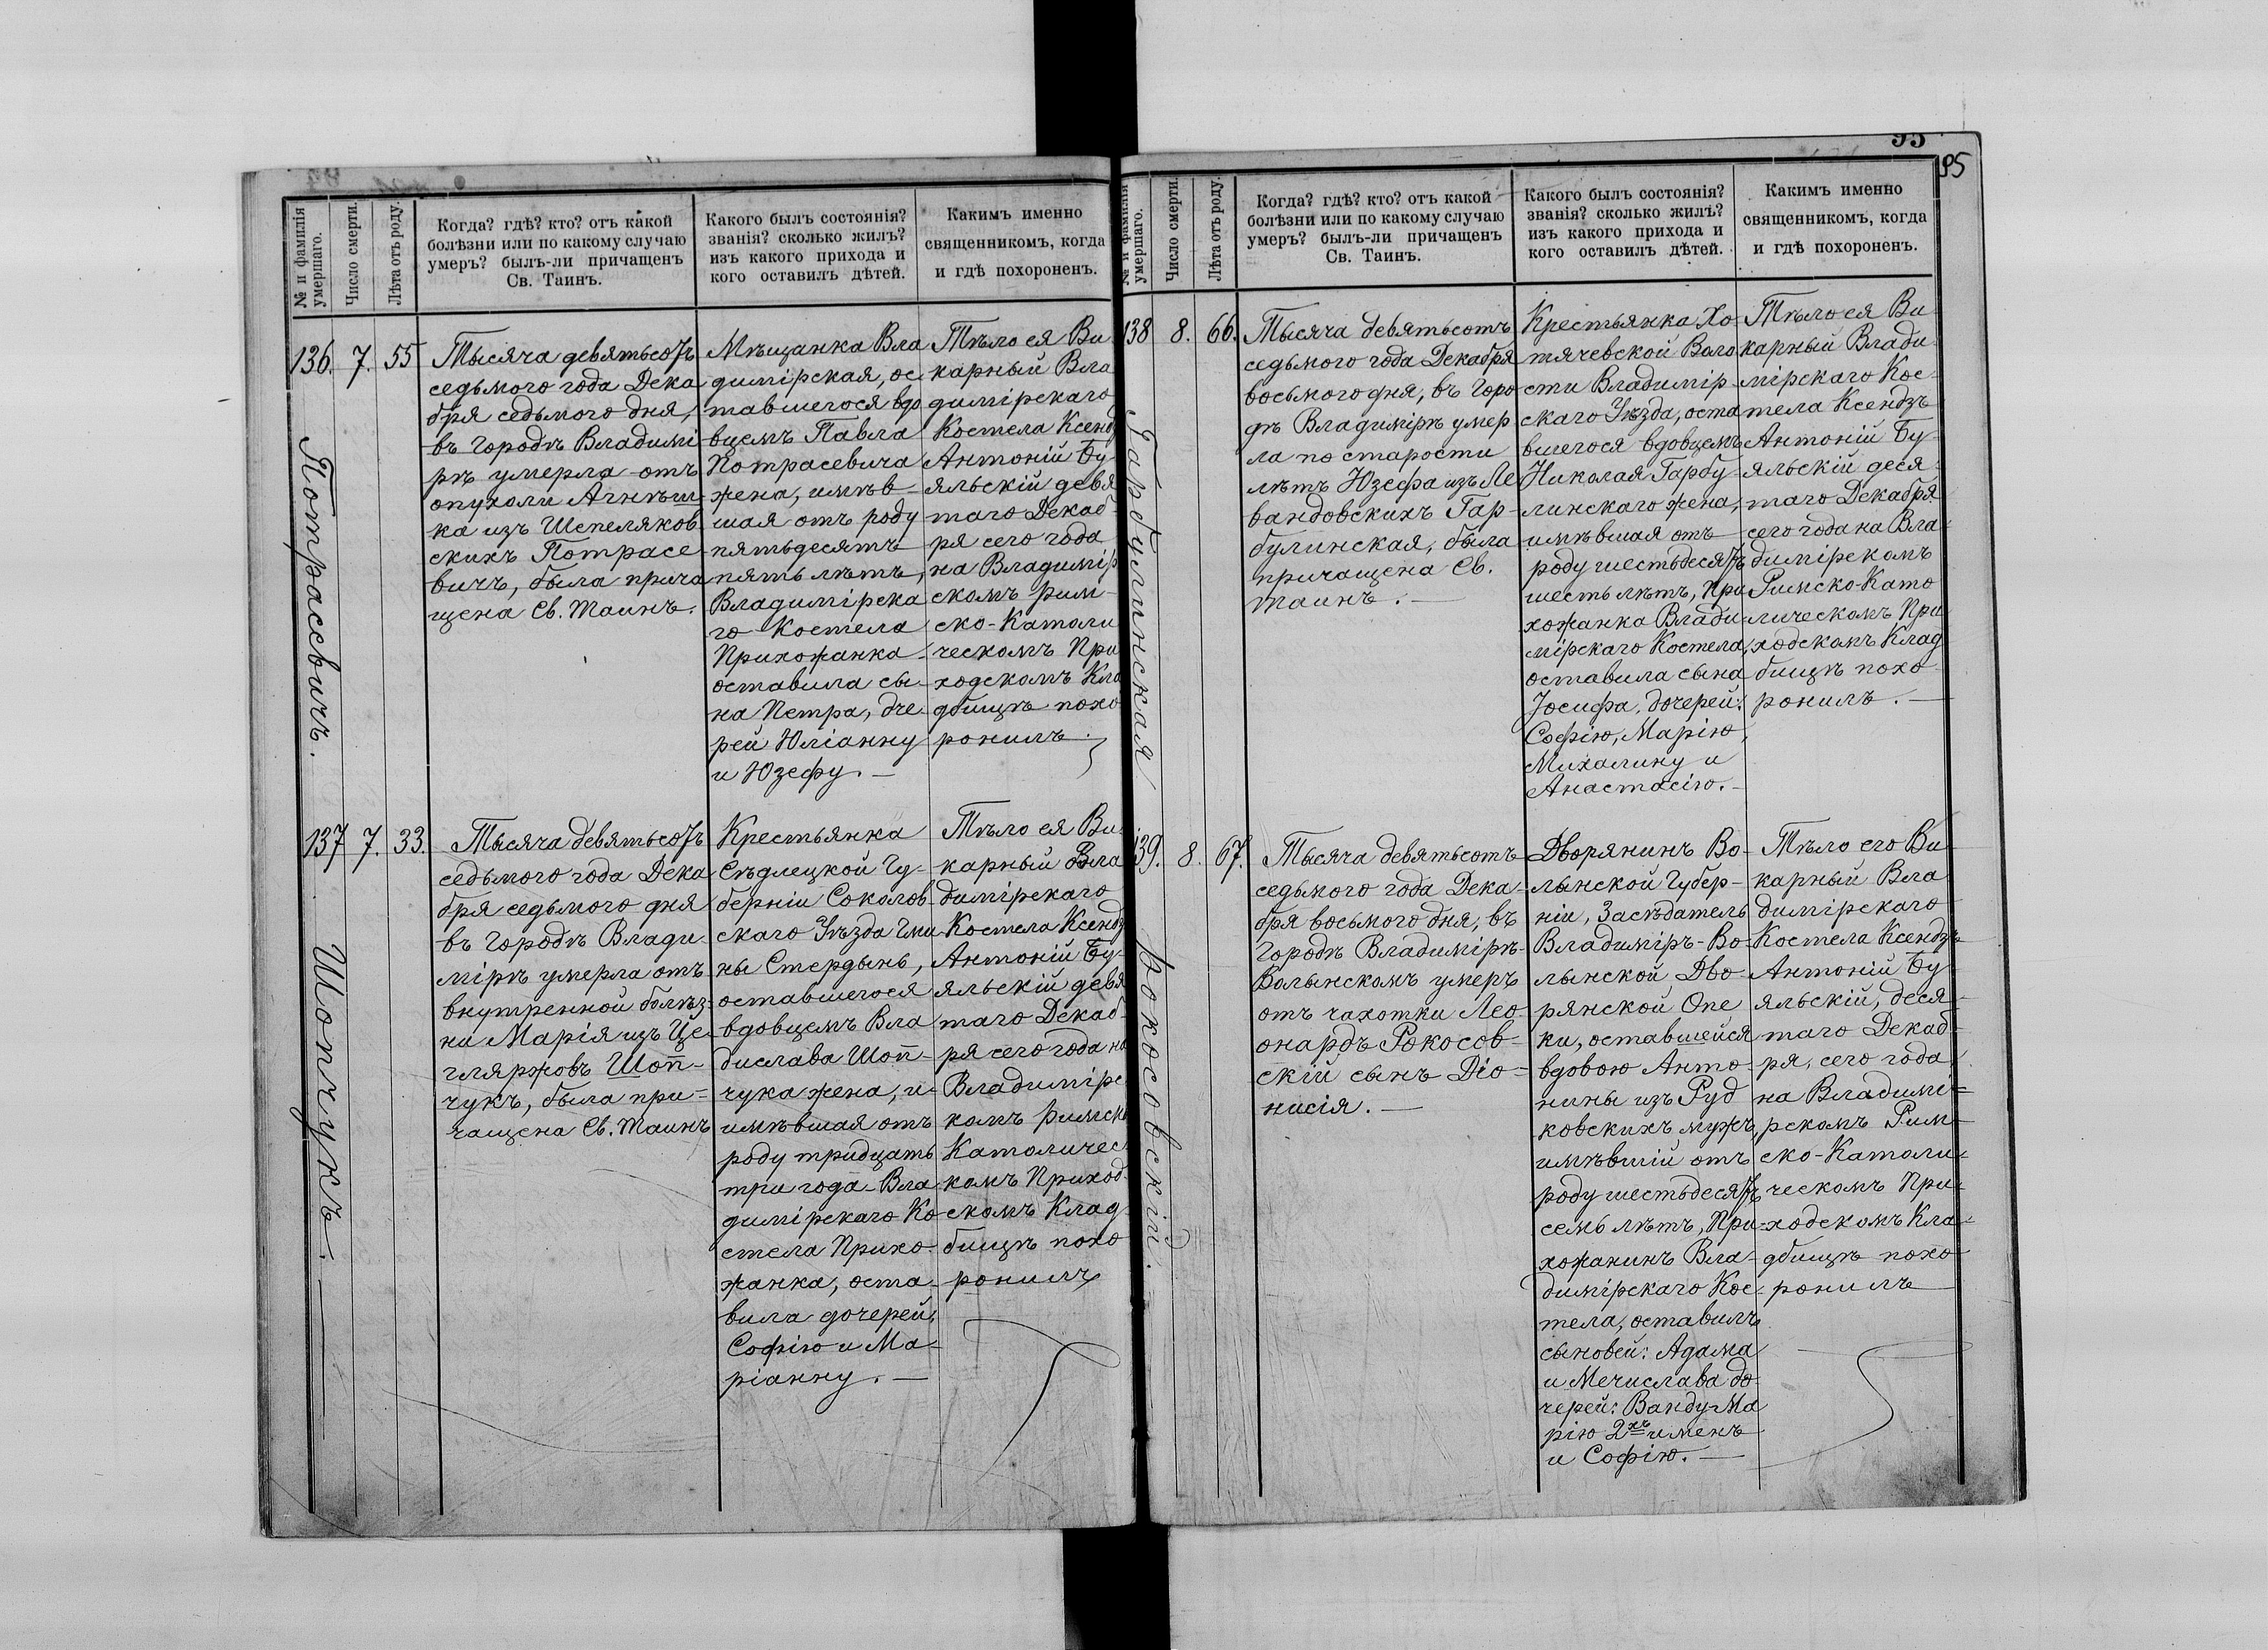 95
95
№ и фамилія
умершаго.
Число смерти.
Лѣта отъ роду.
Когда? гдѣ? кто? отъ какой
болѣзни или по какому случаю
умеръ? былъ-ли причащенъ
Св. Таинъ.
Какого былъ состоянія?
званія? сколько жилъ?
изъ какого прихода и
кого оставилъ дѣтей.
Какимъ именно
священникомъ, когда
и гдѣ похороненъ.
136.
Потрасевичъ.
7.
55
Тысяча девятьсотъ
седьмого года Дека
бря седьмого дня,
въ городѣ Владимі
рѣ умерла отъ
опухоли Агнѣш-
ка изъ Шепеляков
скихъ Потрасе-
вичъ, была прича
щена Св. Таинъ.
Мѣщанка Вла
димірская, ос
тавшегося вдо
вцемъ Павла
Потрасевича
жена, имѣв-
шая отъ роду
пятьдесятъ
пять лѣтъ,
Владимірска
го Костела
Прихожанка
оставила сы-
на Петра, дче-
рей Юліанну
и Юзефу.—
Тѣло ея Ви
карный Вла
димірскаго
Костела Ксенд
Антоній Бу-
яльскій девя
таго Декаб-
ря сего года
на Владимір
скомъ Рим-
ско-Католи
ческомъ При
ходскомъ Кла
дбищѣ похо
ронилъ.
137
Шопчукъ.
7.
33.
Тысяча девятьсотъ
седьмого года Дека
бря седьмого дня
въ городѣ Влади
мірѣ умерла отъ
внутренной болѣз-
ни Марія изъ Це-
гляржовъ Шоп-
чукъ, была при=
чащена Св. Таинъ
Крестьянка
Сѣдлецкой Гу-
берніи Соколов-
скаго Уѣзда Гми
ны Стердынь,
оставшегося
вдовцемъ Вла
дислава Шоп-
чука жена, и-
имѣвшая отъ
роду тридцать
три года Вла
димірскаго Ко
стела Прихо-
жанка, оста-
вила дочерей:
Софію и Ма-
ріанну.—
Тѣло ея Ви
карный Вла
димірскаго
Костела Ксендз
Антоній Бу-
яльскій девя
таго Декаб-
ря сего года на
Владимірс
комъ Римско
Католичес
комъ Приход-
скомъ Клад-
бищѣ похо
ронилъ
№ и фамилія
умершаго.
Число смерти.
Лѣта отъ роду.
Когда? гдѣ? кто? отъ какой
болѣзни или по какому случаю
умеръ? былъ-ли причащенъ
Св. Таинъ.
Какого былъ состоянія?
званія? сколько жилъ?
изъ какого прихода и
кого оставилъ дѣтей.
Какимъ именно
священникомъ, когда
и гдѣ похороненъ.
138
Гарбулинская
8.
66.
Тысяча девятьсотъ
седьмого года Декабря
восьмого дня, въ горо
дѣ Владимірѣ умер
ла по старости
лѣтъ Юзефа изъ Ле
вандовскихъ Гар-
булинская, была
причащена Св.
Таинъ.—
Крестьянка Хо-
тячевской Воло
сти Владимір-
скаго Уѣзда, оста
вшегося вдовцемъ
Николая Гарбу-
линскаго жена,
имѣвшая отъ
роду шестьдесятъ
шесть лѣтъ, При
хожанка Влади-
мірскаго Костела,
оставила сына
Іосифа, дочерей:
Софію, Марію,
Михалину и
Анастасію.—
Тѣло ея Ви
карный Влади-
мірскаго Кос-
тела Ксендзъ
Антоній Бу-
яльскій деся-
таго Декабря
сего года на Вла-
димірскомъ
Римско-Като
лическомъ При
ходскомъ Клад
бищѣ похо-
ронилъ.—
139.
Рокосовскій.
8.
67.
Тысяча девятьсотъ
седьмого года Дека-
бря восьмого дня, въ
Городѣ Владимірѣ-
Волынскомъ умеръ
отъ чахотки Лео-
онардъ Рокосов-
скій сынъ Діо-
нисія.—
Дворянинъ Во-
лынской Губер-
ніи, Засѣдатель
Владиміръ-Во-
лынской Дво-
рянской Опе
ки, оставшейся
вдовою Анто-
нины изъ Руд
ковскихъ мужъ,
имѣвшій отъ
роду шестьдесятъ
семь лѣтъ, При-
хожанинъ Вла-
димірскаго Кос-
тела, оставилъ
сыновей: Адама
и Мечислава до-
черей: Ванду-Ма
рію 2хъ именъ
и Софію.—
Тѣло его Ви-
карный Вла
димірскаго
Костела Ксендзъ
Антоній Бу-
яльскій, деся-
таго Декаб-
ря, сего года,
на Владимі-
рскомъ Рим-
ско-Католи-
ческомъ При-
ходскомъ Кла-
дбищѣ похо-
ронилъ